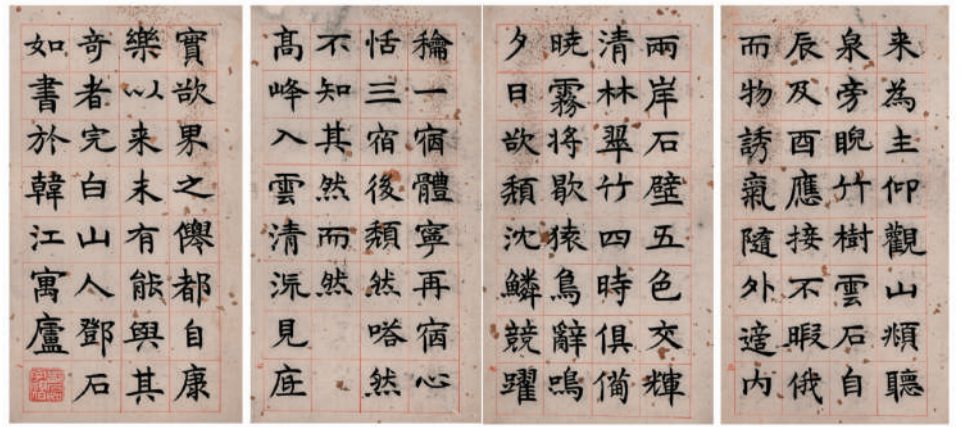 来為主仰觀山頫聽
泉旁睨竹樹雲石自
辰及酉應接不暇俄
而物誘氣隨外適内
兩岸石壁五色交輝
清林翠竹四時俱備
曉霧將歇猿鳥辭鳴
夕日欲頹沈鱗競躍
龢一宿體寧再宿心
恬三宿後頹然嗒然
不知其然而然
髙峰入雲清流見底
實欲界之僊都自康
樂以来未有能與其
奇者完白山人鄧石
如書於韓江寓廬